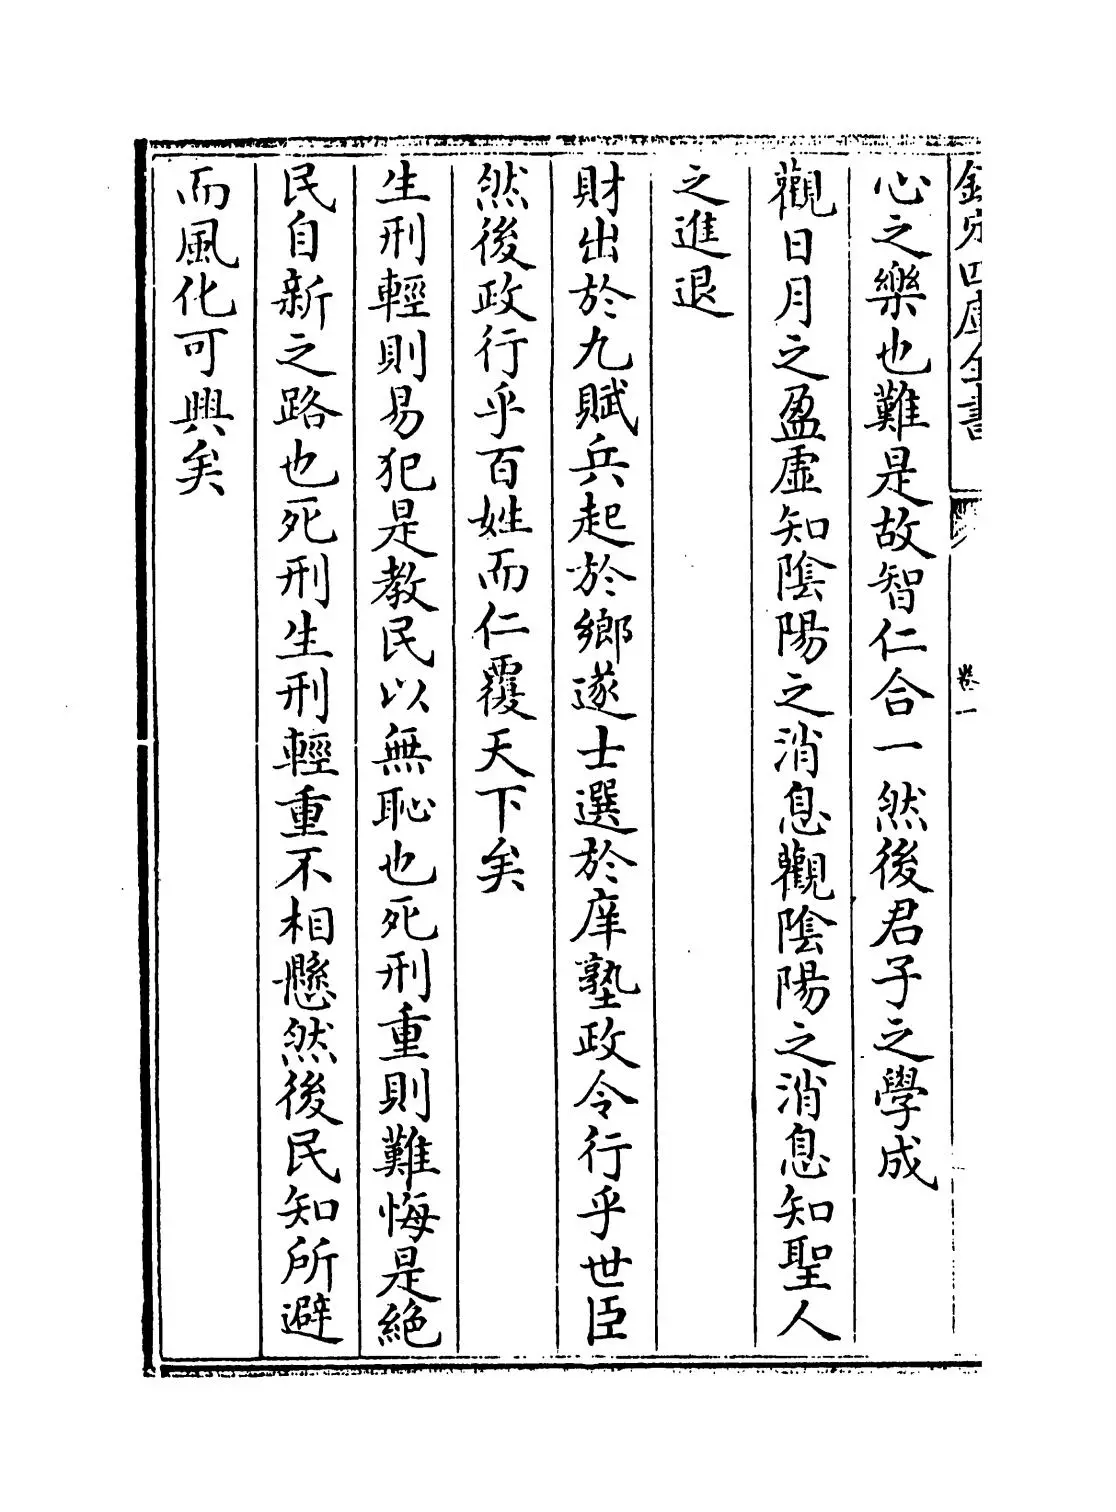 欽定四庫全書
卷一
心之樂也難是故智仁合一然後君子之學成
觀日月之盈虛知陰陽之消息觀陰陽之消息知聖人
之進退
財出於九賦兵起於鄉遂士選於庠塾政令行乎世臣
然後政行乎百姓而仁覆天下矣
生刑輕則易犯是教民以無恥也死刑重則難悔是絶
民自新之路也死刑生刑輕重不相懸然後民知所避
而風化可興矣